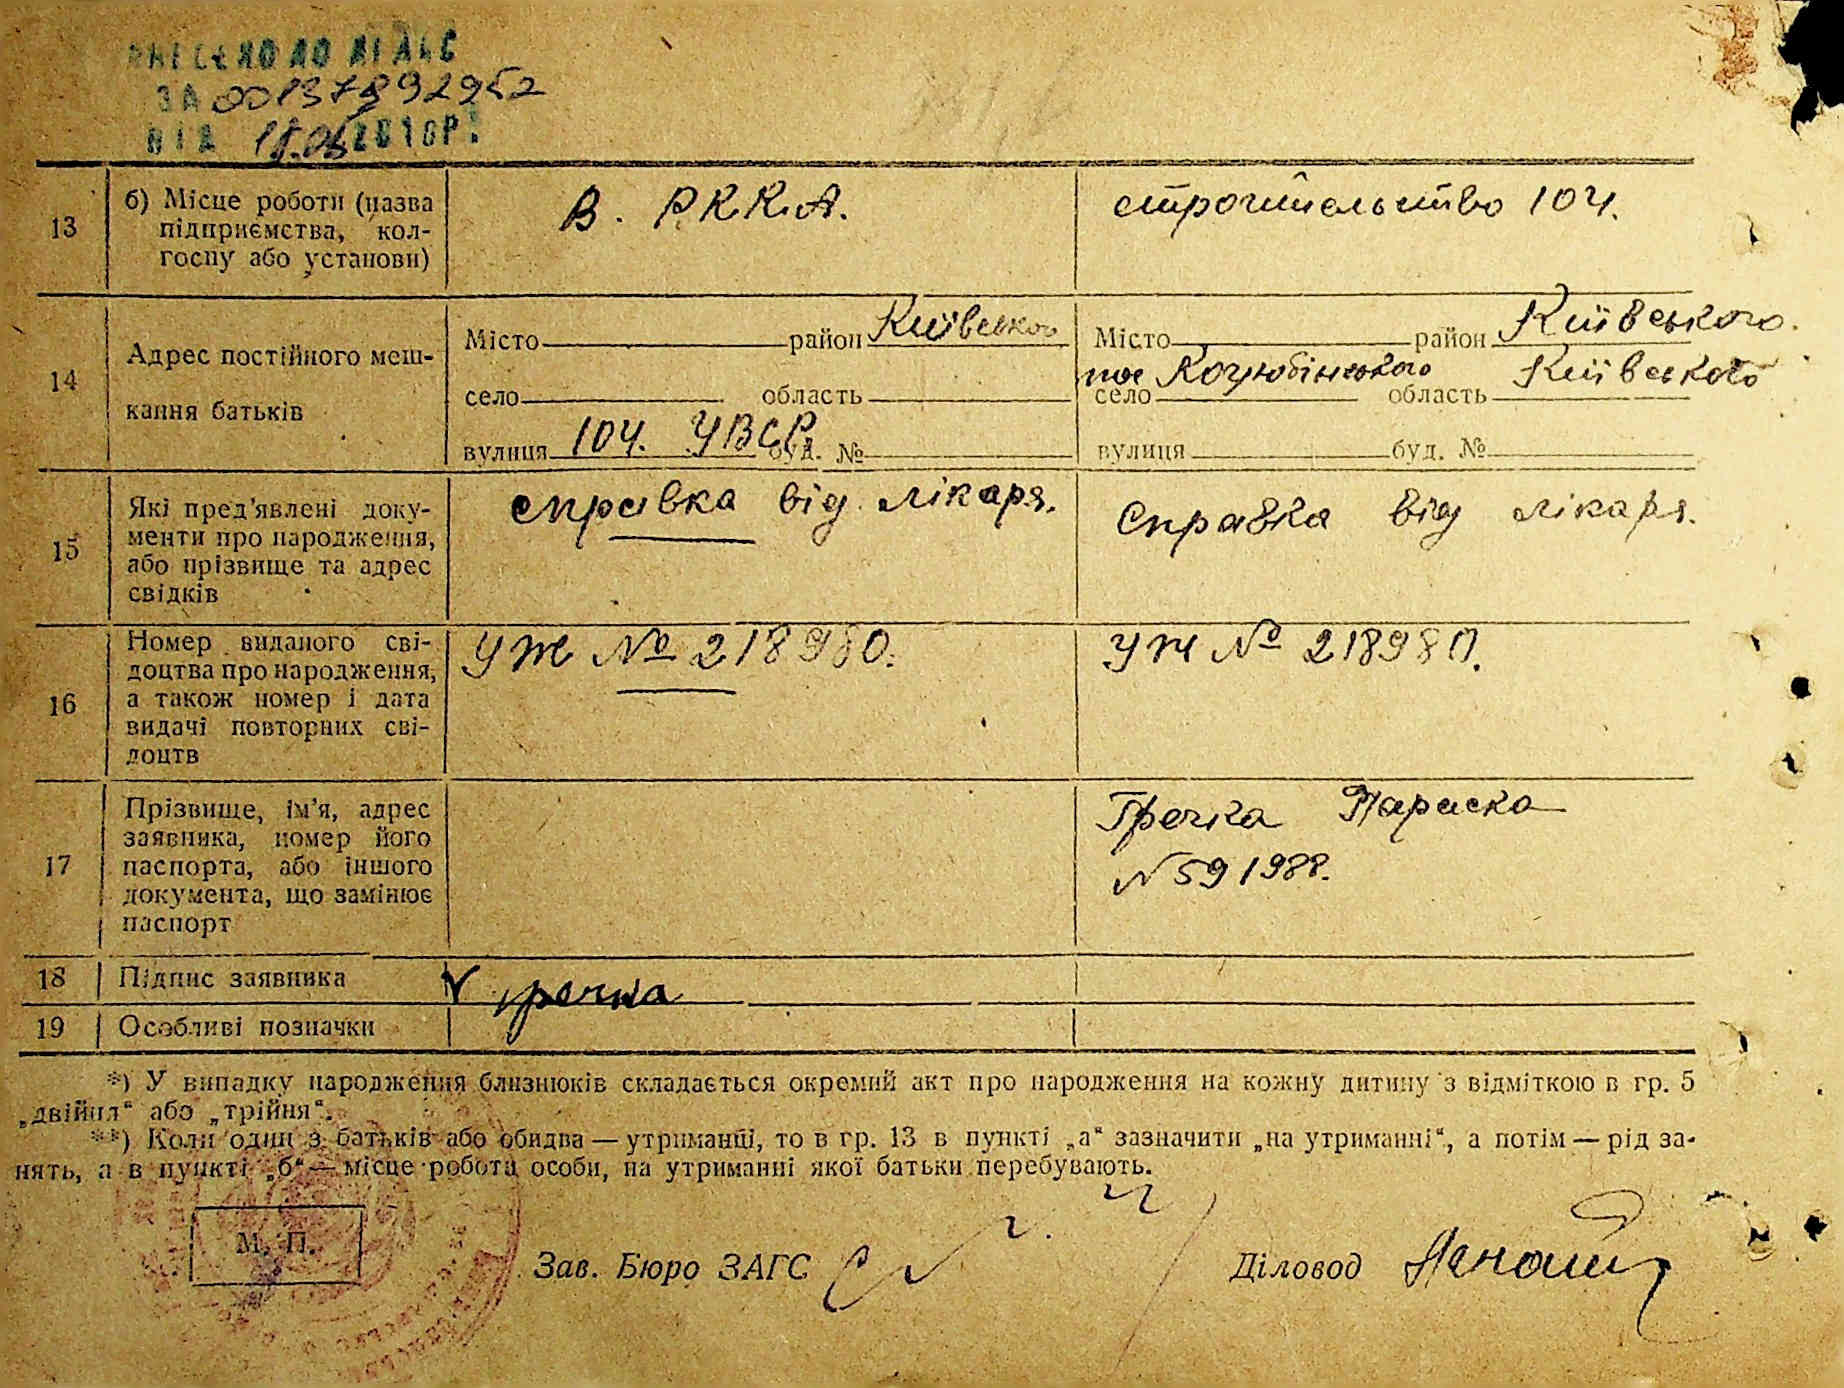 ВНЕСЕНО ДО
ЗА 00137892952
ВІД 2010Р.
13
б) Місце роботи (назва
підприємства, кол-
госпу або установи)
В. РККА.
строительство 104.
14
Адрес постійного меш-
кання батьків
Місто район Київського
село область
вулиця 104. УВСР. буд. №
Місто район Київського.
пос Коцюбінського Київського
село область
вулиця буд. №
15
Які пред'явлені доку-
менти про народження,
або прізвище та адрес
свідків
справка від лікаря.
Справка від лікаря.
16
Номер виданого сві-
доцтва про народження,
а також номер і дата
видачі повторних сві-
доцтв
УЖ № 218980.
УЖ № 218980.
17
Прізвище, ім'я, адрес
заявника, номер його
паспорта, або іншого
документа, що замінює
паспорт
Гречка Параска
N 591988.
18
Підпис заявника
Гречка
19
Особливі позначки
*) У випадку народження близнюків складається окремий акт про народження на кожну дитину з відміткою в гр. 5
„двійня“ або „трійня“.
**) Коли один з батьків або обидва — утриманці, то в гр. 13 в пункті „а“ зазначити „на утриманні“, а потім — рід за-
нять, а в пункті „б“ — місце роботи особи, на утриманні якої батьки перебувають.
М. П.
Зав. Бюро ЗАГС
Діловод